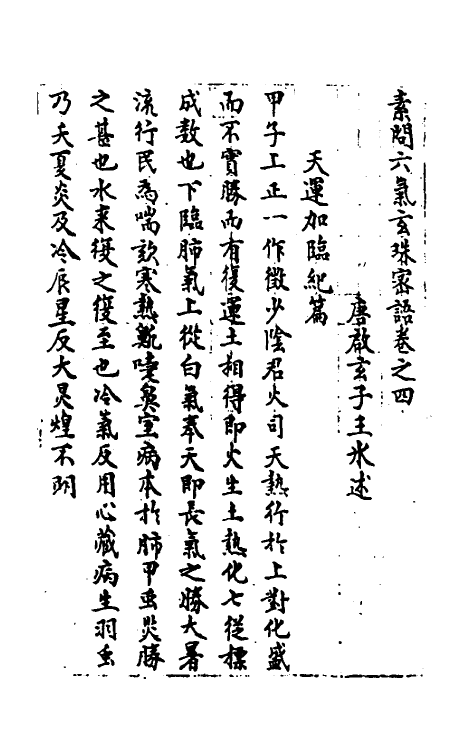 素問六氣玄珠密語卷之四
唐啟玄子王氷述
天運加臨紀篇
甲子工正一作徵少陰君火司天熱行於上對化盛
而不實勝而有復運土相得即火生土熱化七從標
成数也下臨肺氣上從白氣奉天即長氣之勝大暑
流行民為喘欬寒熱鼽嚏鼻窒病本於肺甲虫災勝
之甚也水来復之復至也冷氣反用心藏病生羽虫
乃夭夏炎及冷辰星反大炅煌不明